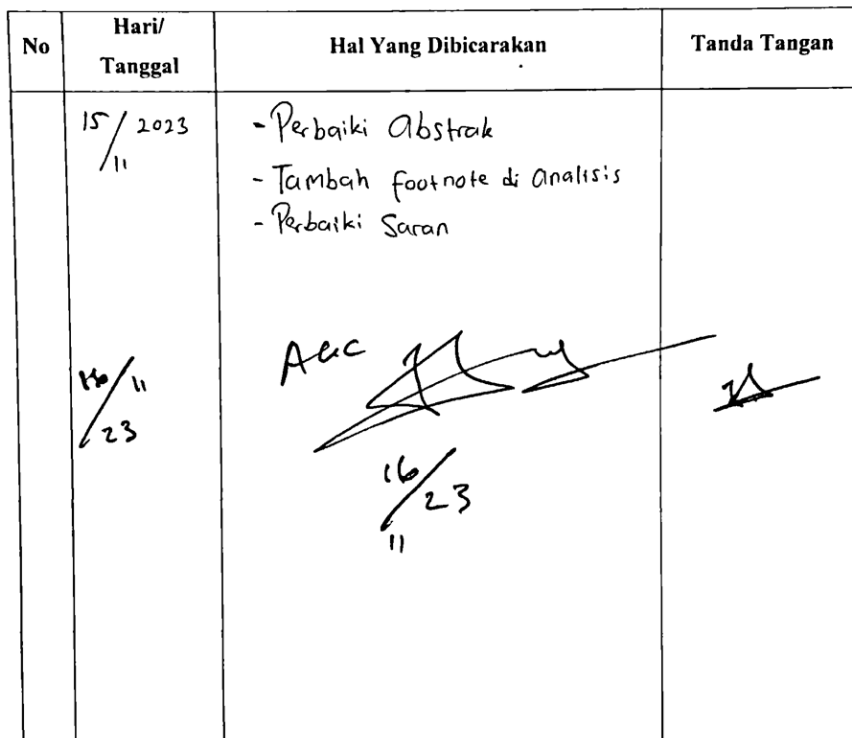 No
Hari/
Tanggal
Hal Yang Dibicarakan
Tanda Tangan
15/11 2023
- Perbaiki Abstrak
- Tambah footnote di analisis
- Perbaiki Saran
16/11/23
Acc
16/11 23